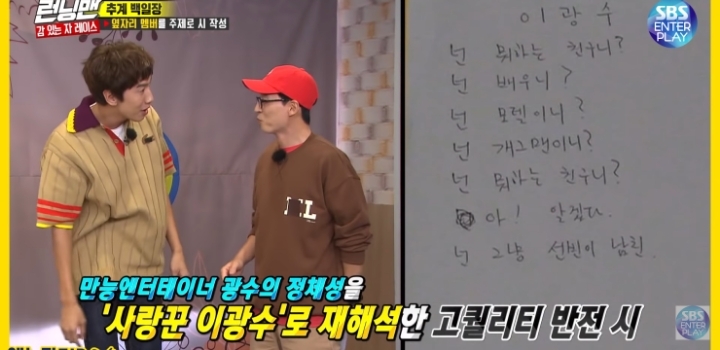 런닝맨
감 있는 자 레이스
추계 백일장
옆자리 멤버를 주제로 시 작성
SBS
ENTER
PLAY
이광수
넌 뭐하는 친구니?
넌 배우니?
넌 모델이니?
넌 개그맨이니?
넌 뭐하는 친구니?
아! 알겠다.
넌 그냥 선빈이 남친.
만능엔터테이너 광수의 정체성을
'사랑꾼 이광수'로 재해석한 고퀄리티 반전 시
SBS
ENTER
PLAY